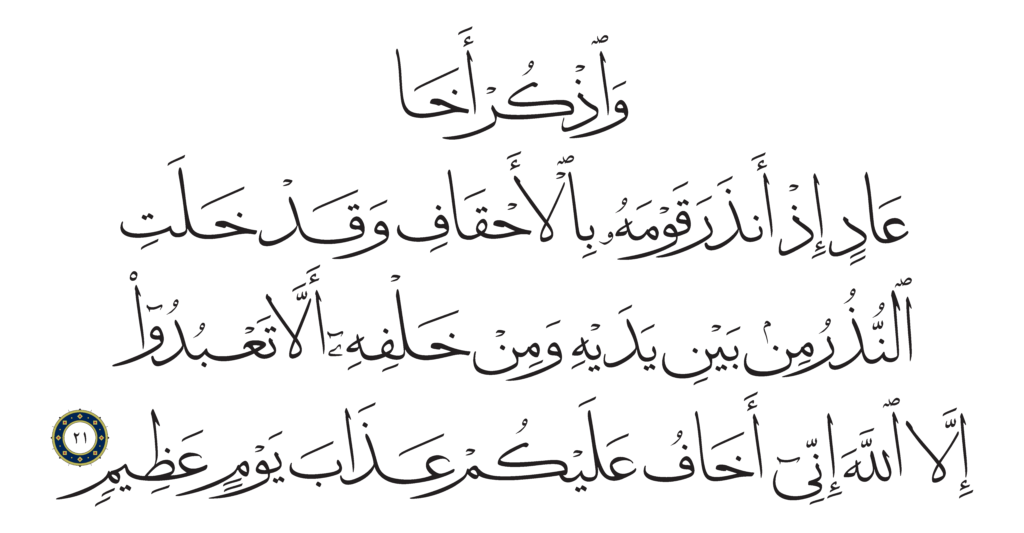 وَٱذْكُرْ أَخَا
عَادٍ إِذْ أَنذَرَ قَوْمَهُۥ بِٱلْأَحْقَافِ وَقَدْ خَلَتِ
ٱلنُّذُرُ مِنۢ بَيْنِ يَدَيْهِ وَمِنْ خَلْفِهِۦٓ أَلَّا تَعْبُدُوٓا۟
إِلَّا ٱللَّهَ إِنِّىٓ أَخَافُ عَلَيْكُمْ عَذَابَ يَوْمٍ عَظِيمٍ ٢١